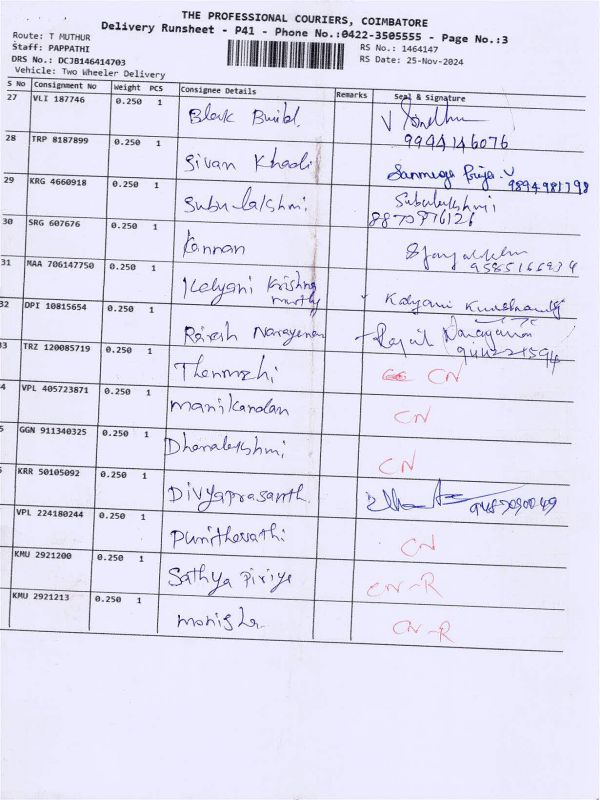 THE PROFESSIONAL COURIERS, COIMBATORE
Delivery Runsheet - P41 - Phone No.:0422-3505555 - Page No.:3
Route: T MUTHUR
Staff: PAPPATHI
RS No.: 1464147
DRS No.: DCJB146414703
RS Date: 25-Nov-2024
Vehicle: Two Wheeler Delivery
S No Consignment No Weight PCS Consignee Details Remarks Seal & Signature
27 VLI 187746 0.250 1 Black Build
9944146076
28 TRP 8187899 0.250 1 Sivan Khadi Sanmuga Priya.V
9894981798
29 KRG 4660918 0.250 1 Subulakshmi Subulakshmi
8870976126
30 SRG 607676 0.250 1 Kannan
9585166934
31 MAA 706147750 0.250 1 Kalyani Krishna
murthy Kalyani
32 DPI 10815654 0.250 1 Rajesh Narayanan
33 TRZ 120085719 0.250 1 Thenmozhi CN
4 VPL 405723871 0.250 1 Manikandan CN
5 GGN 911340325 0.250 1 Dhanalakshmi CN
KRR 50105092 0.250 1 Divyaprasanth.
VPL 224180244 0.250 1 Punithavathi CN
KMU 2921200 0.250 1 Sathya Piriya CN-R
KMU 2921213 0.250 1 Monisha CN-R